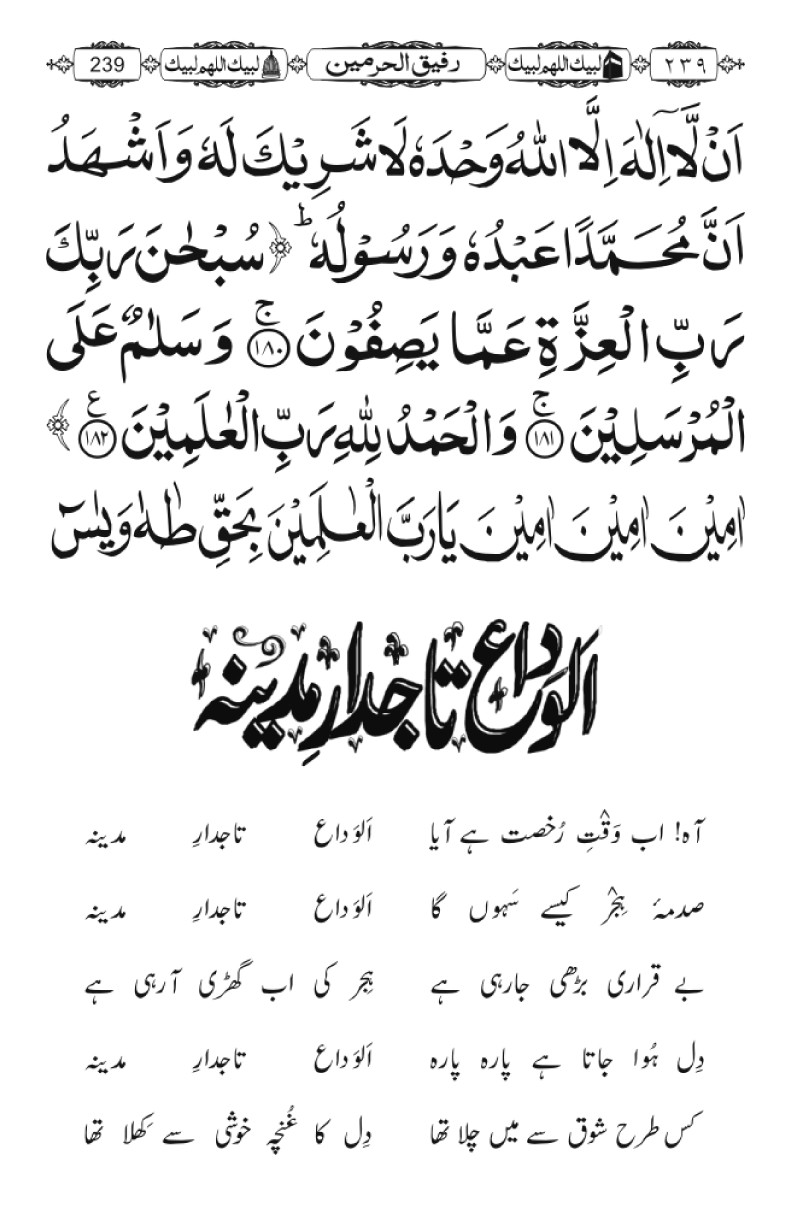 ٢٣٩ لبيك اللهم لبيك رفیق الحرمین لبيك اللهم لبيك 239
اَنْ لَّاۤ اِلٰهَ اِلَّا اللّٰهُ وَحْدَهٗ لَا شَرِیْكَ لَهٗ وَ اَشْهَدُ
اَنَّ مُحَمَّدًا عَبْدُهٗ وَ رَسُوْلُهٗ ؕ ﴿ سُبْحٰنَ رَبِّكَ
رَبِّ الْعِزَّةِ عَمَّا یَصِفُوْنَ ﴿۱۸۰﴾ۚ وَ سَلٰمٌ عَلَی
الْمُرْسَلِیْنَ ﴿۱۸۱﴾ۚ وَ الْحَمْدُ لِلّٰهِ رَبِّ الْعٰلَمِیْنَ ﴿۱۸۲﴾ع ﴾
اٰمِیْنَ اٰمِیْنَ اٰمِیْنَ یَارَبَّ الْعٰلَمِیْنَ بِحَقِّ طٰهٰ وَ یٰسٓ
اَلوَداع تاجدارِ مدینہ
آہ! اب وَقْتِ رُخصت ہے آیا اَلوَداع تاجدارِ مدینہ
صدمۂ ہِجْر کیسے سَہوں گا اَلوَداع تاجدارِ مدینہ
بے قراری بڑھی جارہی ہے ہِجر کی اب گھڑی آرہی ہے
دِل ہُوا جاتا ہے پارہ پارہ اَلوَداع تاجدارِ مدینہ
کس طرح شوق سے میں چلا تھا دِل کا غُنچہ خوشی سے کِھلا تھا